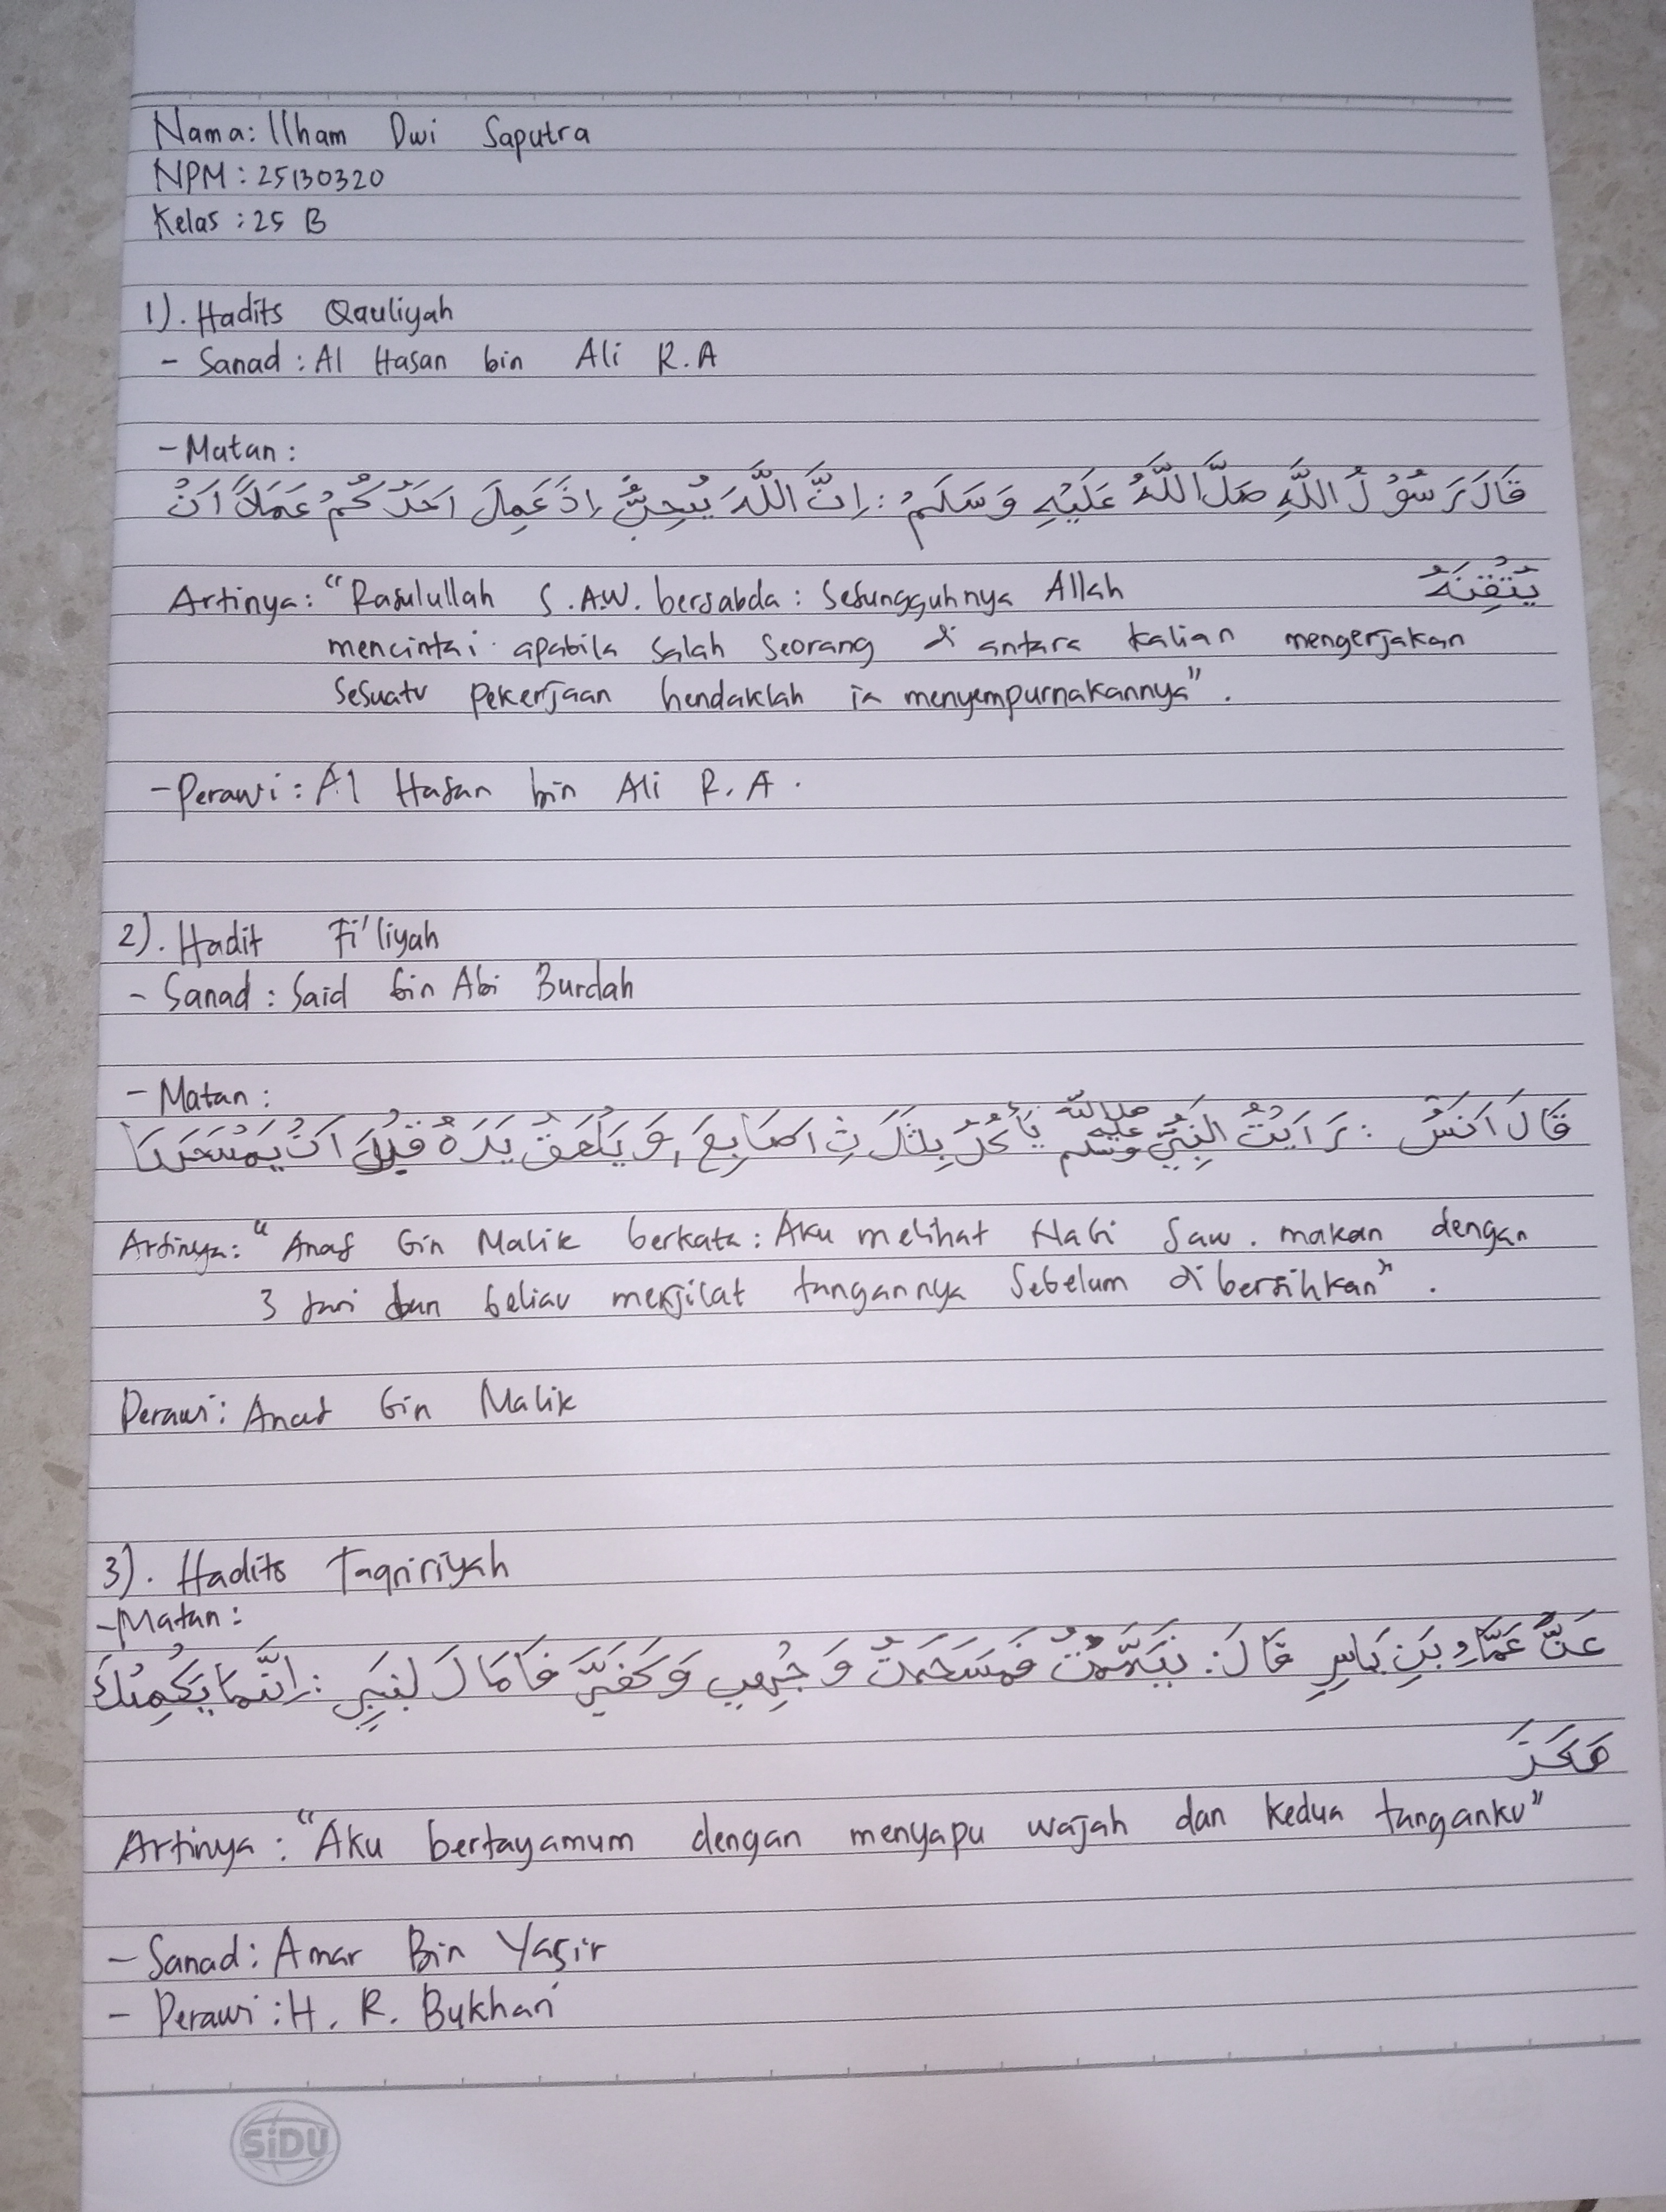 Nama: Ilham Dwi Saputra
NPM : 25130320
Kelas : 25 B
1). Hadits Qauliyah
- Sanad : Al Hasan bin Ali R.A
- Matan :
قَالَ رَسُوْلُ اللَّهِ صَلَّ اللَّهُ عَلَيْهِ وَسَلَمْ : اِنَّ اللَّهَ يُحِبُّ اِذَ عَمِلَ اَحَدُكُمْ عَمَلاً اَنْ
يُتْقِنَهُ
Artinya : "Rasulullah S.A.W. bersabda : Sesungguhnya Allah
mencintai apabila salah seorang di antara kalian mengerjakan
sesuatu pekerjaan hendaklah ia menyempurnakannya".
- Perawi : Al Hasan bin Ali R.A.
2). Hadit Fi'liyah
- Sanad : Said bin Abi Burdah
- Matan :
قَالَ اَنَسٌ : رَاَيْتُ النَّبِيَّ صلى الله عليه وسلم يَأْكُلُ بِثَلَاثِ اَصَابِعَ, وَيَلْعَقُ يَدَهُ قَبْلَ اَنْ يَمْسَحَهَا
Artinya : "Anas bin Malik berkata : Aku melihat Nabi Saw. makan dengan
3 jari dan beliau menjilat tangannya sebelum dibersihkan".
Perawi : Anas bin Malik
3). Hadits Taqririyah
- Matan :
عَنَّ عَمَّارِ بَنِ يَاسِرٍ قَالَ : تَيَمَّمْتُ فَمَسَحْتُ وَجْهِي وَكَفَيَّ فَامَالَ لنَبِيَ : اِنَّمَا يَكْمِيْكَ
هَكَذَ
Artinya : "Aku bertayamum dengan menyapu wajah dan kedua tanganku"
- Sanad : Amar Bin Yasir
- Perawi : H. R. Bukhari
SiDU